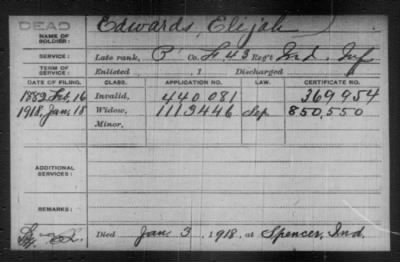 DEAD
NAME OF SOLDIER: Edwards, Elijah
SERVICE: Late rank, P' Co. H, 43 Reg't Ind. Inf
TERM OF SERVICE: Enlisted , 1 Discharged , 1
DATE OF FILING. CLASS. APPLICATION NO. LAW. CERTIFICATE NO.
1882 Feb, 16 Invalid, 440 081 369 954
1918, Jan, 18 Widow, 1113446 Sep 850,550
Minor,
ADDITIONAL SERVICES:
REMARKS:
Died Jan 3, 1918, at Spencer, Ind.